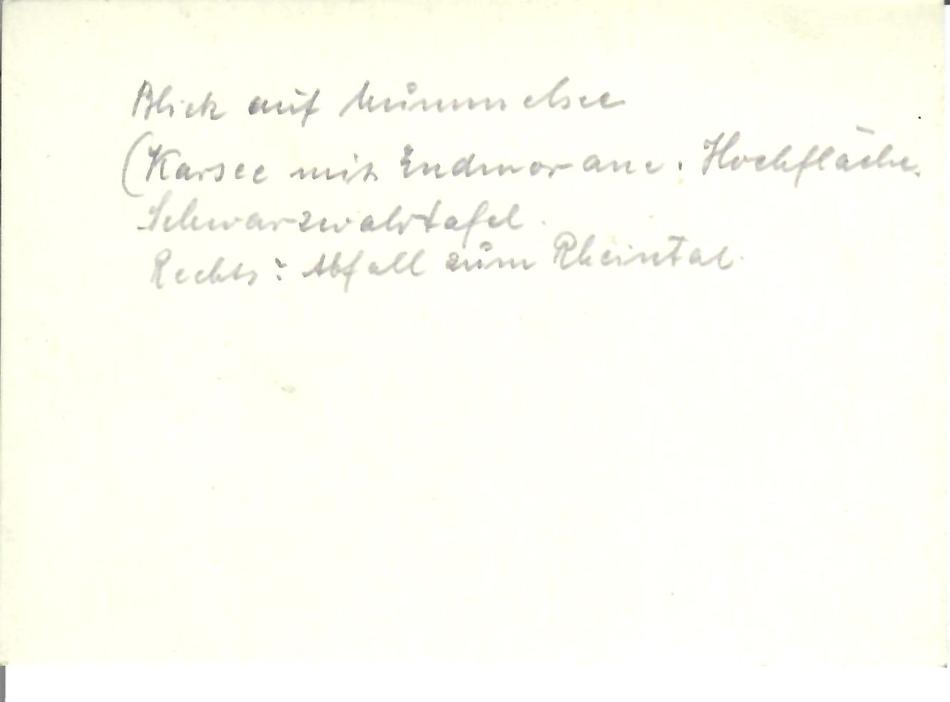 Blick auf Mummelsee
(Karsee mit Endmorane. Hochfläche.
Schwarzwaldtafel.
Rechts: Abfall zum Rheintal.